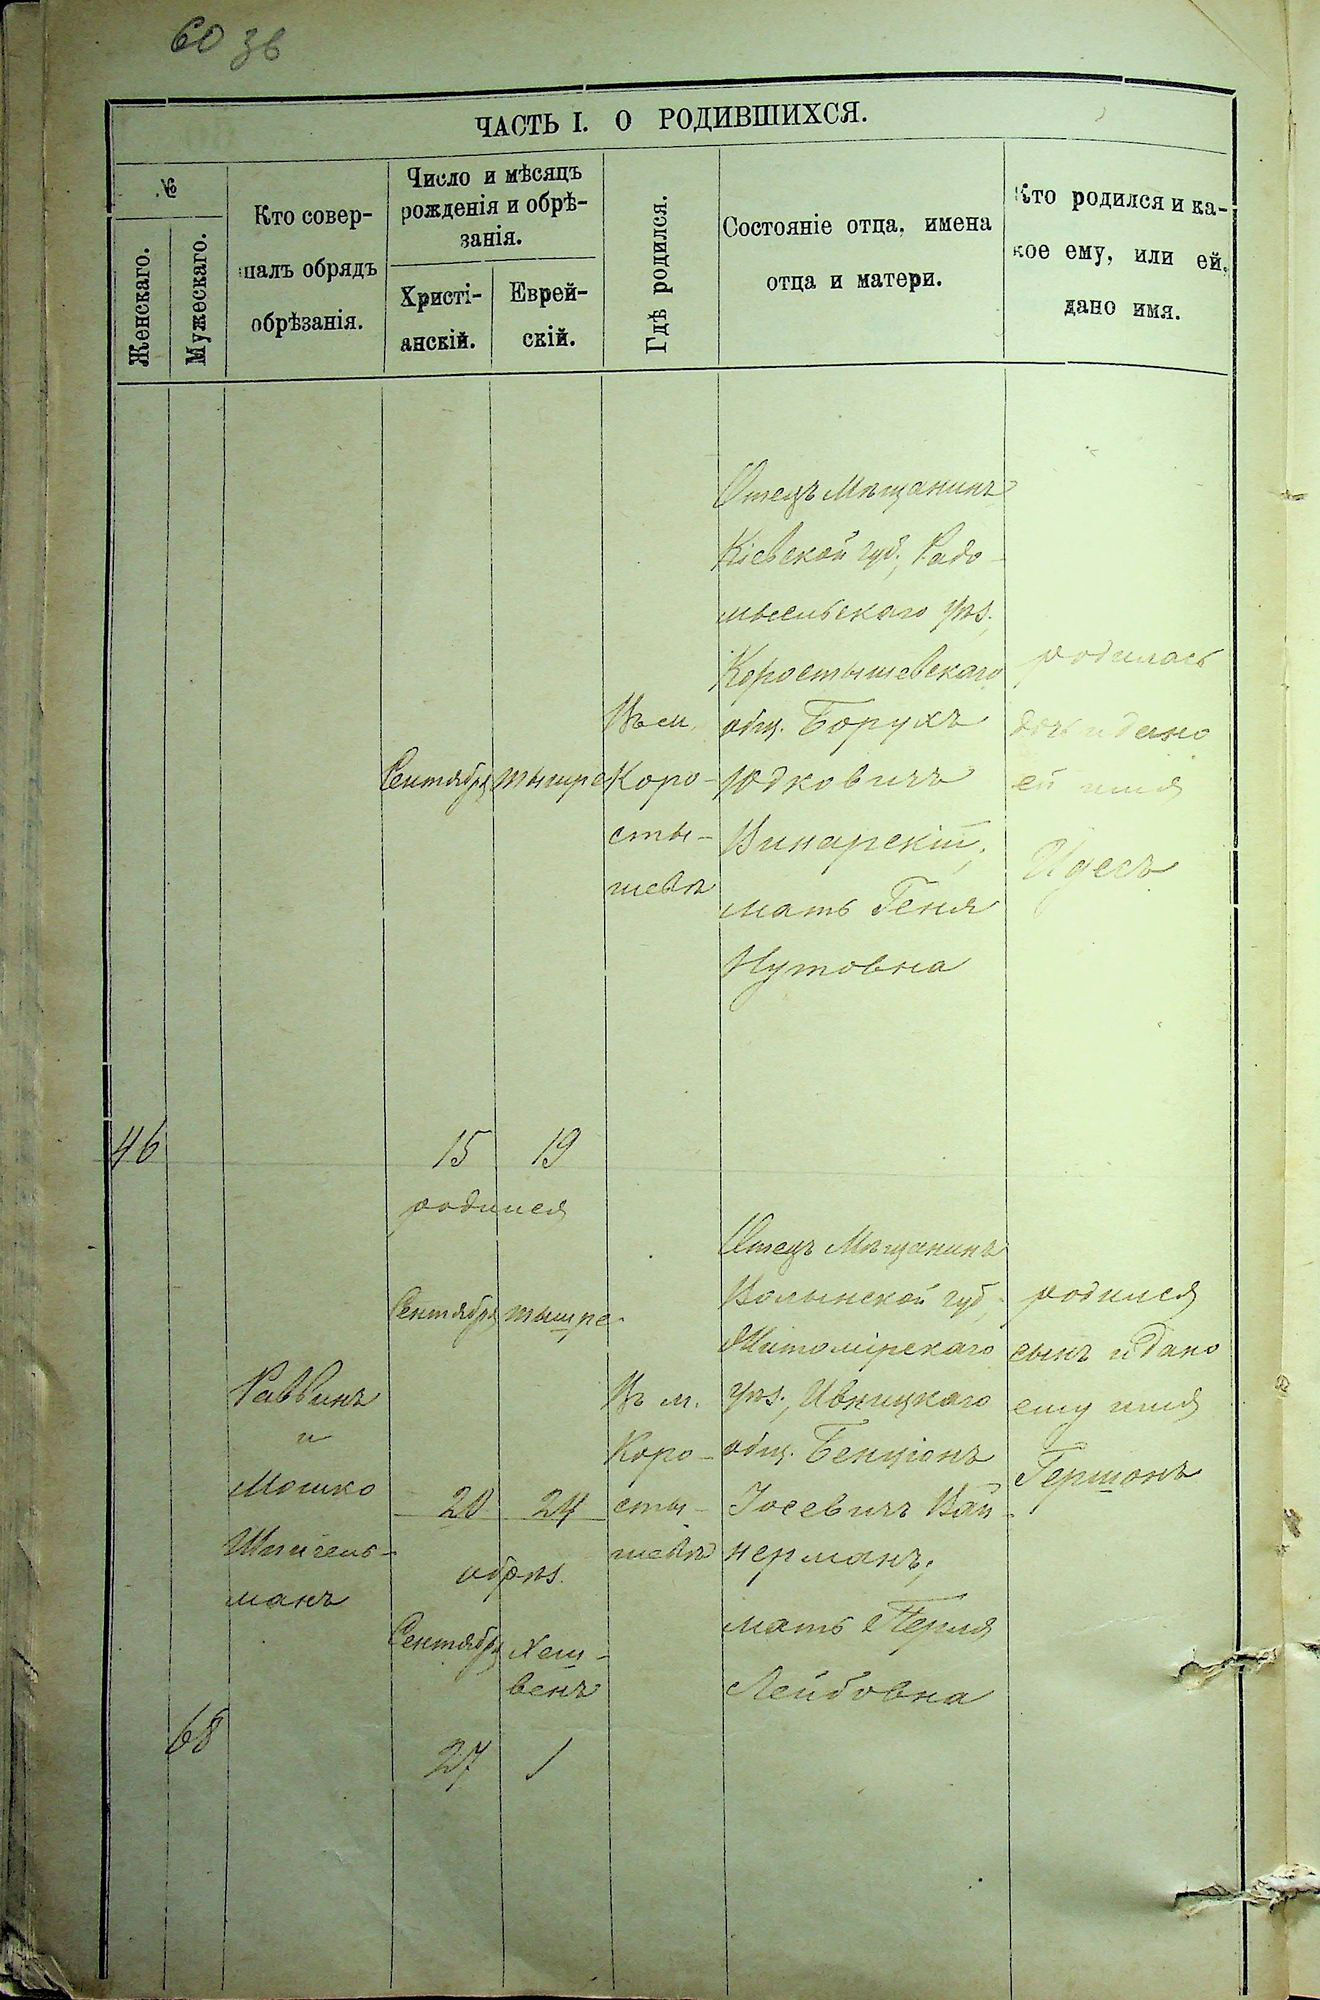 60 зв
ЧАСТЬ I. О РОДИВШИХСЯ.
№
Женскаго.
Мужескаго.
Кто совер-
шалъ обрядъ
обрѣзанія.
Число и мѣсяцъ
рожденія и обрѣ-
занія.
Христі-
анскій.
Еврей-
скій.
Гдѣ родился.
Состояніе отца, имена
отца и матери.
Кто родился и ка-
кое ему, или ей,
дано имя.
46
Сентября
15
тышре
19
Въ м.
Коро-
сты-
шевѣ
Отецъ Мѣщанинъ
Кіевской губ., Радо-
мысльскаго уѣз.,
Коростышевскаго
общ. Борухъ
Юдковичъ
Винарскій,
мать Геня
Нутовна
родилась
дочь и дано
ей имя
Идесъ
68
Раввинъ
и
Мошко
Шпигель-
манъ
родился
Сентября
20
тышре
24
обрѣз.
Сентября
27
Хеш-
венъ
1
Въ м.
Коро-
сты-
шевѣ
Отецъ Мѣщанинъ
Волынской губ.,
Житомірскаго
уѣз., Ивницкаго
общ. Бенціонъ
Іосевичъ Вай-
нерманъ,
мать Перля
Лейбовна
родился
сынъ и дано
ему имя
Гершонъ